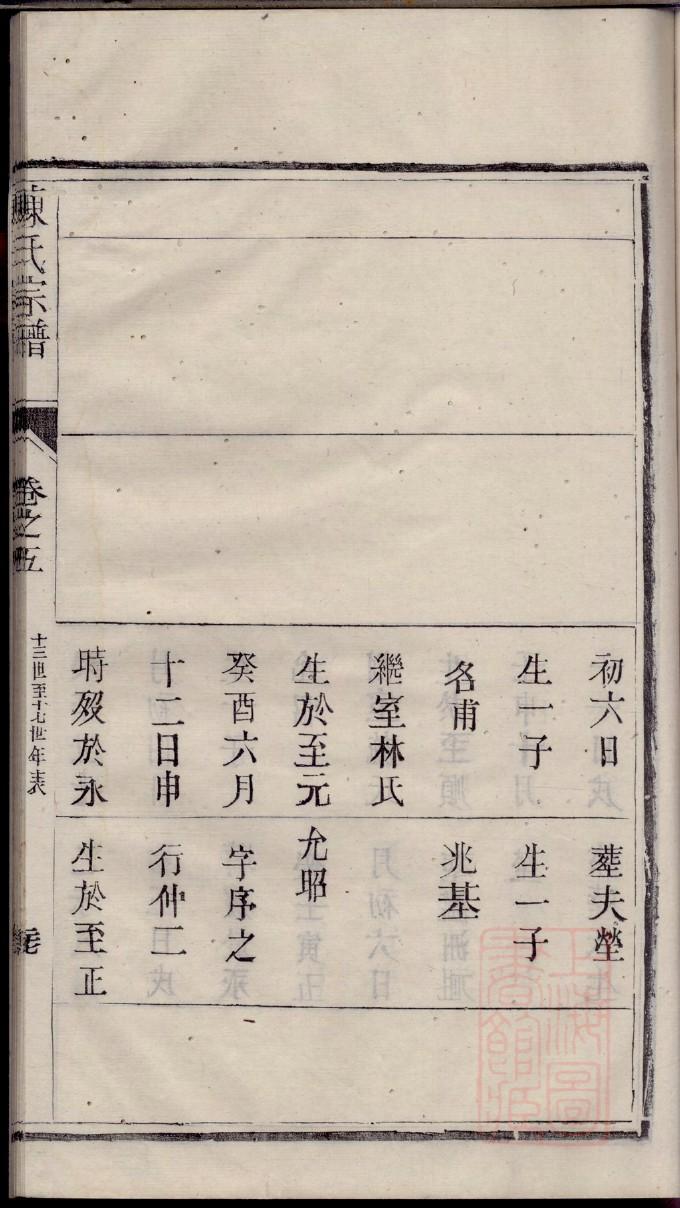 初六日
生一子
名甫
繼室林氏
生於至元
癸酉六月
十二日申
時殁於永
塟夫塋
生一子
兆基
允昭
字序之
行仲二
生於至正
陳氏宗譜
卷之五
十三世至十七世年表